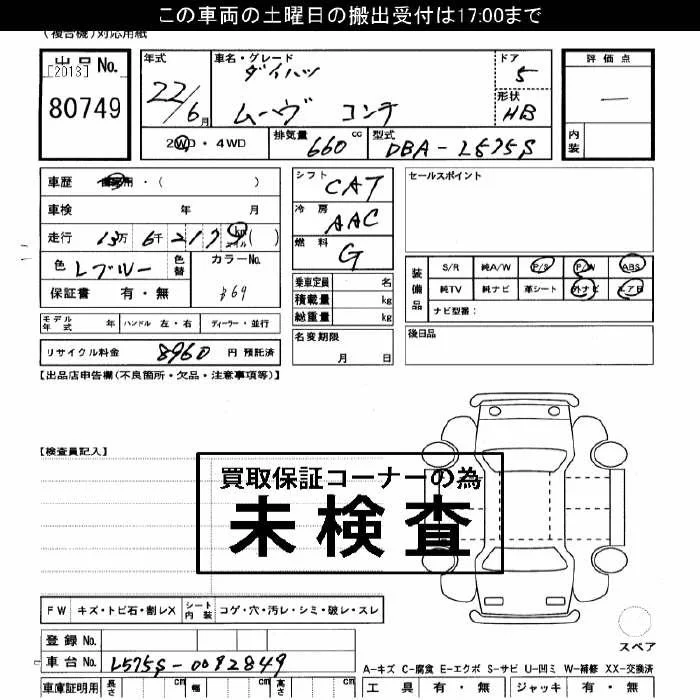 この車両の土曜日の搬出受付は17:00まで
(複合機)対応用紙
出品 No.
[2013]
80749
年式
22/6月
車名・グレード
ダイハツ
ムーヴ コンテ
ドア
5
形状
HB
評価点
—
内装
2WD・4WD
排気量 660 cc
型式 DBA-L575S
車歴 自家用・( )
車検 年 月
走行 13万 6千 2179 km マイル ( )
色 Lブルー
色替
カラーNo.
保証書 有・無
シフト CAT
冷房 AAC
燃料 G
乗車定員 名
積載量 kg
総重量 kg
名変期限
月 日
セールスポイント
装備品
S/R 純A/W P/S P/W ABS
純TV 純ナビ 革シート 外ナビ エアB
ナビ型番:
後日品
モデル年式 年 ハンドル 左・右 ディーラー・並行
リサイクル料金 8960 円 預託済
【出品店申告欄(不良箇所・欠品・注意事項等)】
【検査員記入】
買取保証コーナーの為
未検査
FW キズ・トビ石・割レX シート内装 コゲ・穴・汚レ・シミ・破レ・スレ
スペア
登録 No.
車台 No. L575S-0082849
車庫証明用 長さ cm 幅 cm 高さ cm
A-キズ C-腐食 E-エクボ S-サビ U-凹ミ W-補修 XX-交換済
工具 有・無 ジャッキ 有・無